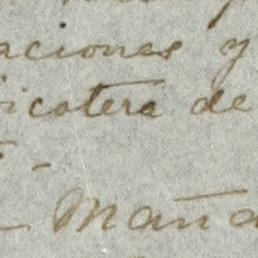 aciones y
icotera de
Maña